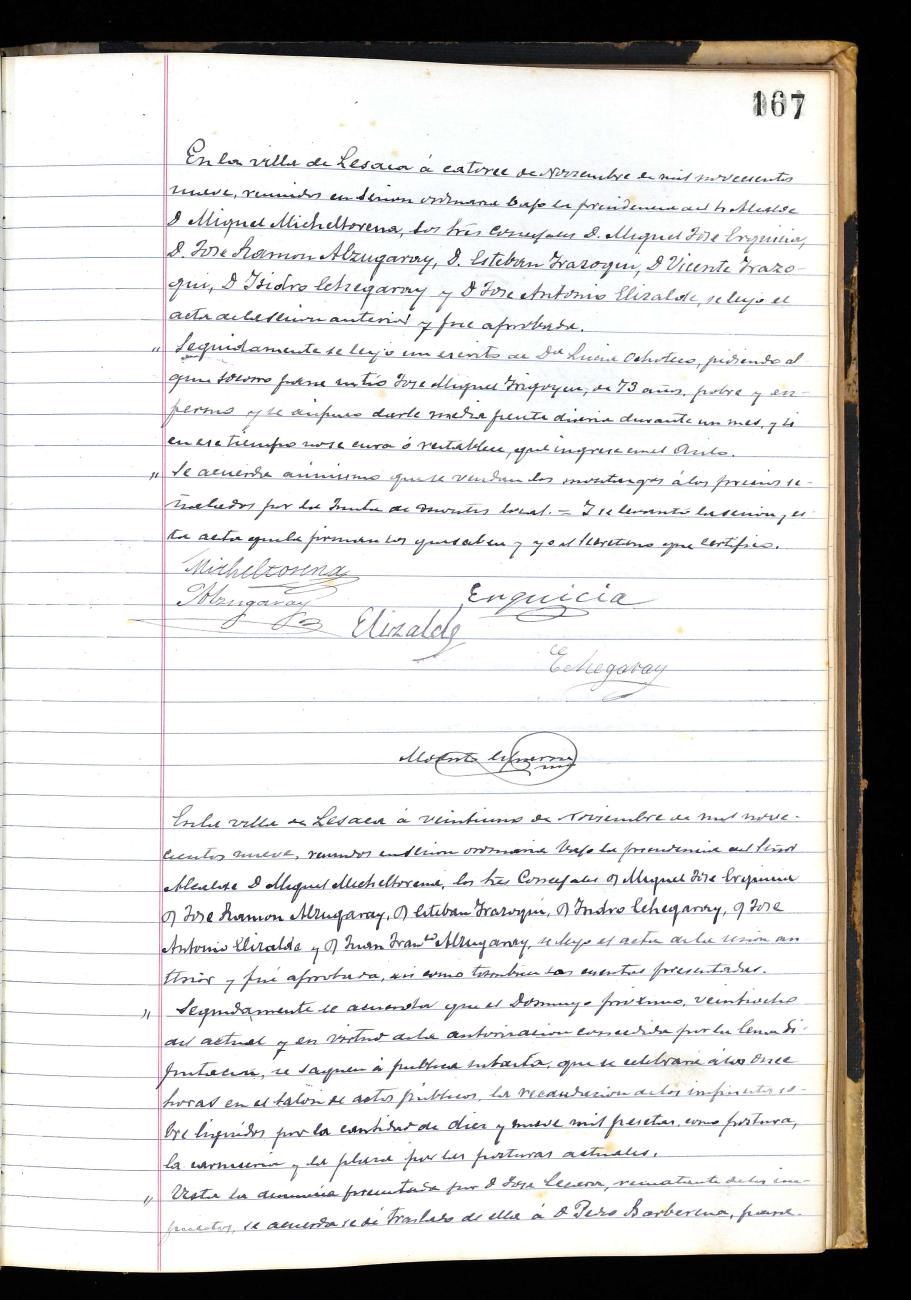 167
En la villa de Lesaca á catorce de Noviembre de mil novecientos
nueve, reunidos en sesion ordinaria bajo la presidencia del Sr Alcalde
D Miguel Micheltorena, los tres Concejales D. Miguel Jose Erquicia,
D. Jose Ramon Alzugaray, D. Esteban Irazoqui, D Vicente Irazo-
qui, D Isidro Echegaray y D Jose Antonio Elizalde, se leyo el
acta de la sesion anterior y fue aprobada.
" Seguidamente se leyo un escrito de Dª Lucia pidiendo al-
gun socorro para su tio Jose Miguel Irigoyen, de 73 años, pobre y en-
fermo y se dispuso darle media peseta diaria durante un mes, y si
en ese tiempo no se cura ó restablece, que ingrese en el Asilo.
" Se acuerda asimismo que se vendan los montazgos á los precios se-
ñalados por la Junta de montes local. = Y se levantó la sesion y es-
ta acta que la firman los que saben y yo el Secretario que certifico.
Micheltorena
Alzugaray
Erquicia
Elizalde
Echegaray
En la villa de Lesaca á veintiuno de Noviembre de mil nove-
cientos nueve, reunidos en sesion ordinaria bajo la presidencia del Señor
Alcalde D Miguel Micheltorena, los tres Concejales D Miguel Jose Erquicia
D Jose Ramon Alzugaray, D Esteban Irazoqui, D Isidro Echegaray, D Jose
Antonio Elizalde y D Juan Franco Alzugaray, se leyo el acta de la sesion an
terior y fué aprobada, asi como tambien las cuentas presentadas.
" Seguidamente se acuerda que el Domingo proximo, veintiocho
del actual y en virtud de la autorizacion concedida por la Excma Di-
putacion, se saquen á publica subasta, que se celebrará á las once
horas en el salon de actos públicos, la recaudacion de los impuestos so-
bre liquidos por la cantidad de diez y nueve mil pesetas como postura,
la carniceria y la plaza por las posturas actuales.
" Vista la denuncia presentada por D Jose rematante de los im-
puestos, se acuerda se dé traslado de ella á D Pedro Barberena, para